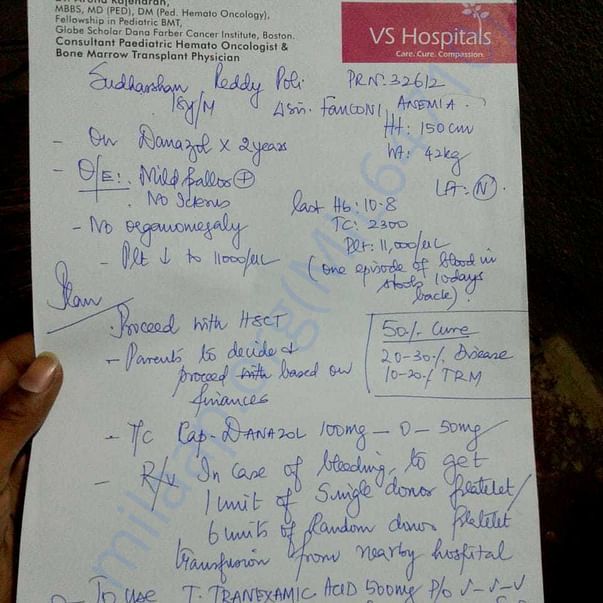 MBBS, MD (PED), DM (Ped. Hemato Oncology),
Fellowship in Pediatric BMT,
Globe Scholar Dana Farber Cancer Institute, Boston.
Consultant Paediatric Hemato Oncologist &
Bone Marrow Transplant Physician
VS Hospitals
Care. Cure. Compassion.
Sudharshan Reddy Poli PRN: 32612
18y/M FANCONI ANEMIA.
Ht: 150 cm
- On Danazol x 2 years
Wt: 42kg
- O/E: Mild pallor +
LFT: N.
No Icterus
last Hb: 10.8
- No organomegaly
TC: 2300
Plt: 11,000/uL
- Plt ↓ to 11000/uL
(one episode of blood in
stools 10days
back).
Plan
. Proceed with HSCT
50% Cure
20-30% Disease
10-20% TRM
- Parents to decide &
proceed with based on
finances
- T/C Cap. DANAZOL 100mg - 0 - 50mg
- R/v In case of bleeding, to get
1 unit of Single donor platelet/
6 units of Random donor platelet
transfusion from nearby hospital
- To use T. TRANEXAMIC ACID 500mg P/o √-√-√
milaap.org